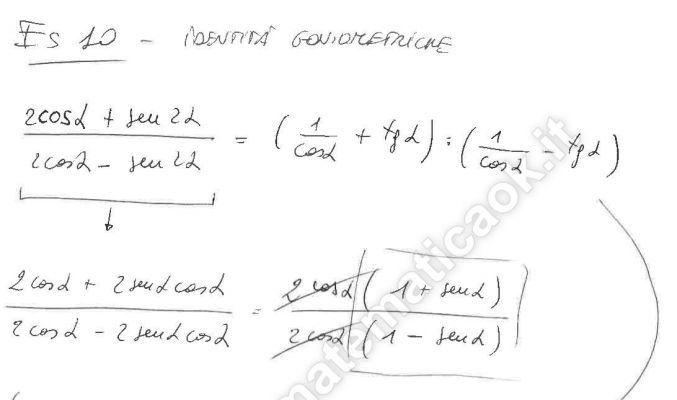 ES 10 - IDENTITÀ GONIOMETRICHE
(2cosα + sen 2α) / (2cosα - sen 2α) = (1/cosα + tgα) : (1/cosα - tgα)
(2cosα + 2senα cosα) / (2cosα - 2senα cosα) = 2cosα (1 + senα) / 2cosα (1 - senα)
matematicaok.it